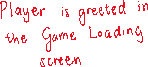 Player is greeted in
the Game Loading
screen